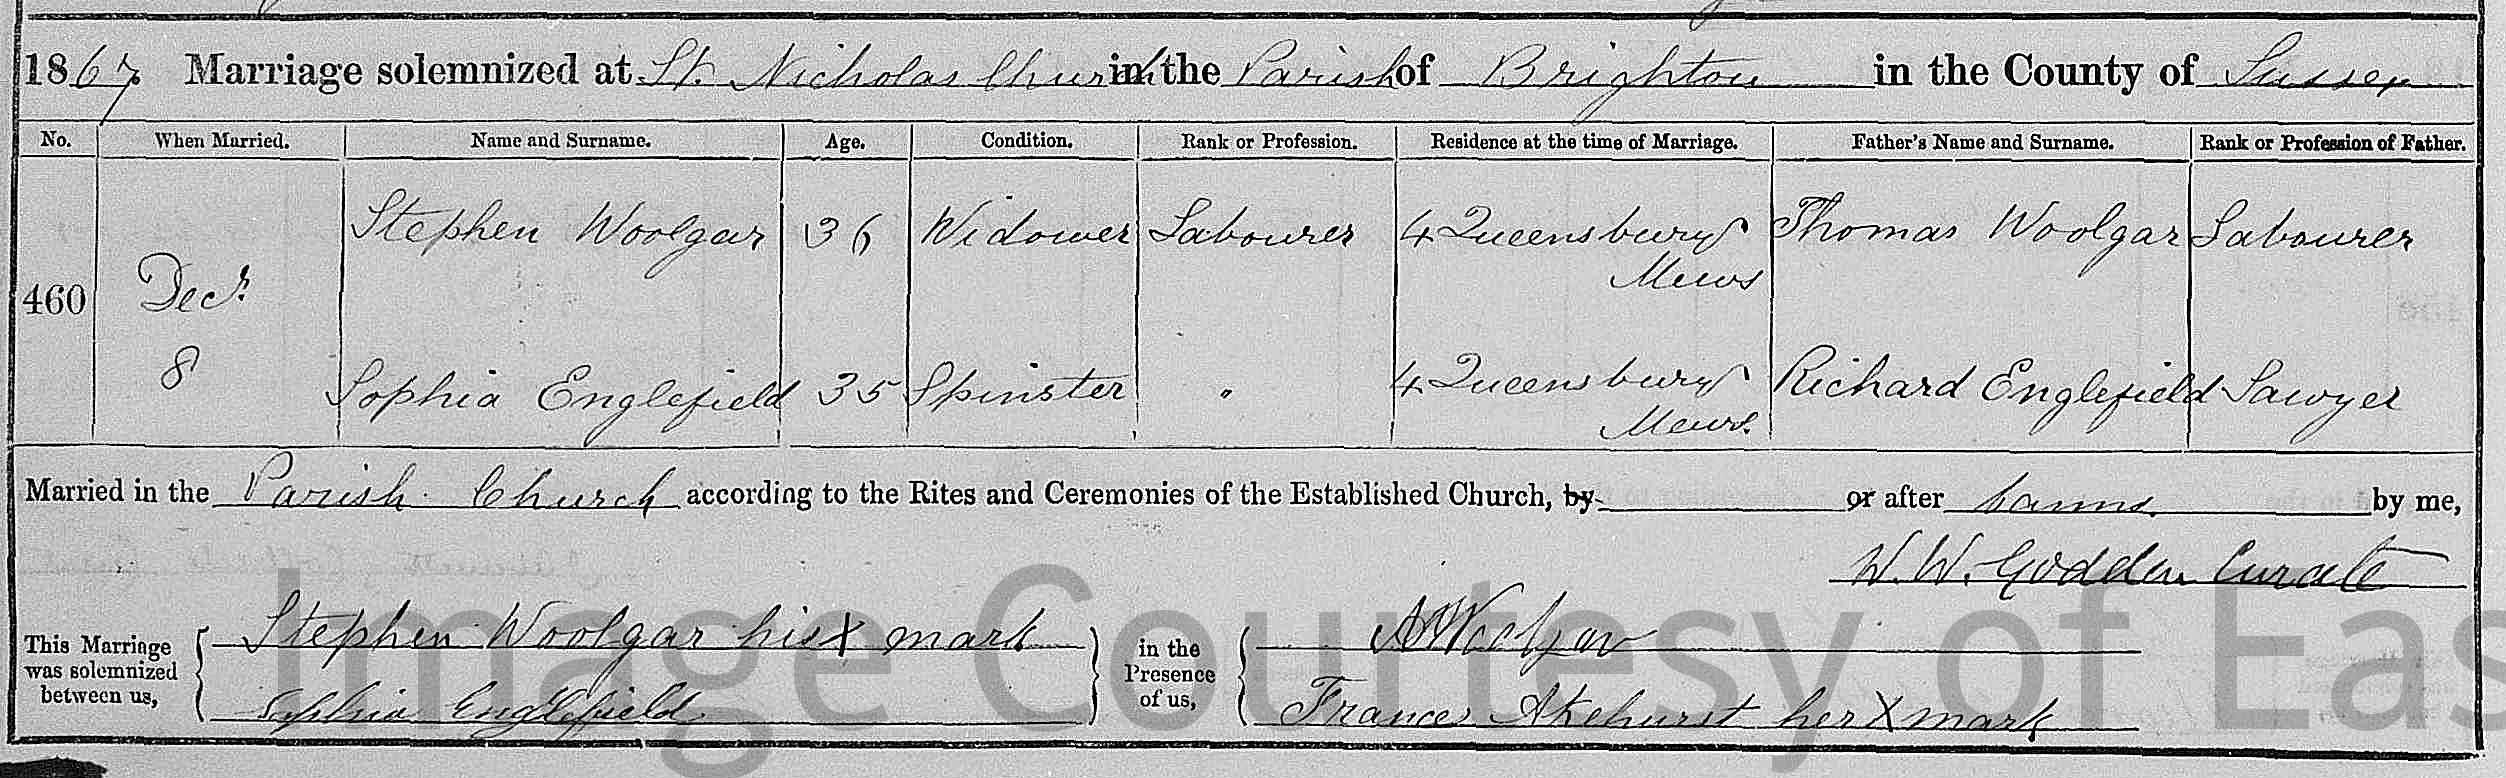 1867 Marriage solemnized at St. Nicholas Church in the Parish of Brighton in the County of Sussex
No. When Married. Name and Surname. Age. Condition. Rank or Profession. Residence at the time of Marriage. Father's Name and Surname. Rank or Profession of Father.
Stephen Woolgar 36 Widower Labourer 4 Queensbury Thomas Woolgar Labourer
Mews
460 Decr.
8 Sophia Englefield 35 Spinster " 4 Queensbury Richard Englefield Sawyer
Mews.
Married in the Parish Church according to the Rites and Ceremonies of the Established Church, by or after banns. by me,
W. W. Godden Curate
This Marriage was solemnized between us, Stephen Woolgar his X mark in the Presence of us, A Woolgar
Sophia Englefield Frances Akehurst her X mark
Image Courtesy of Eas